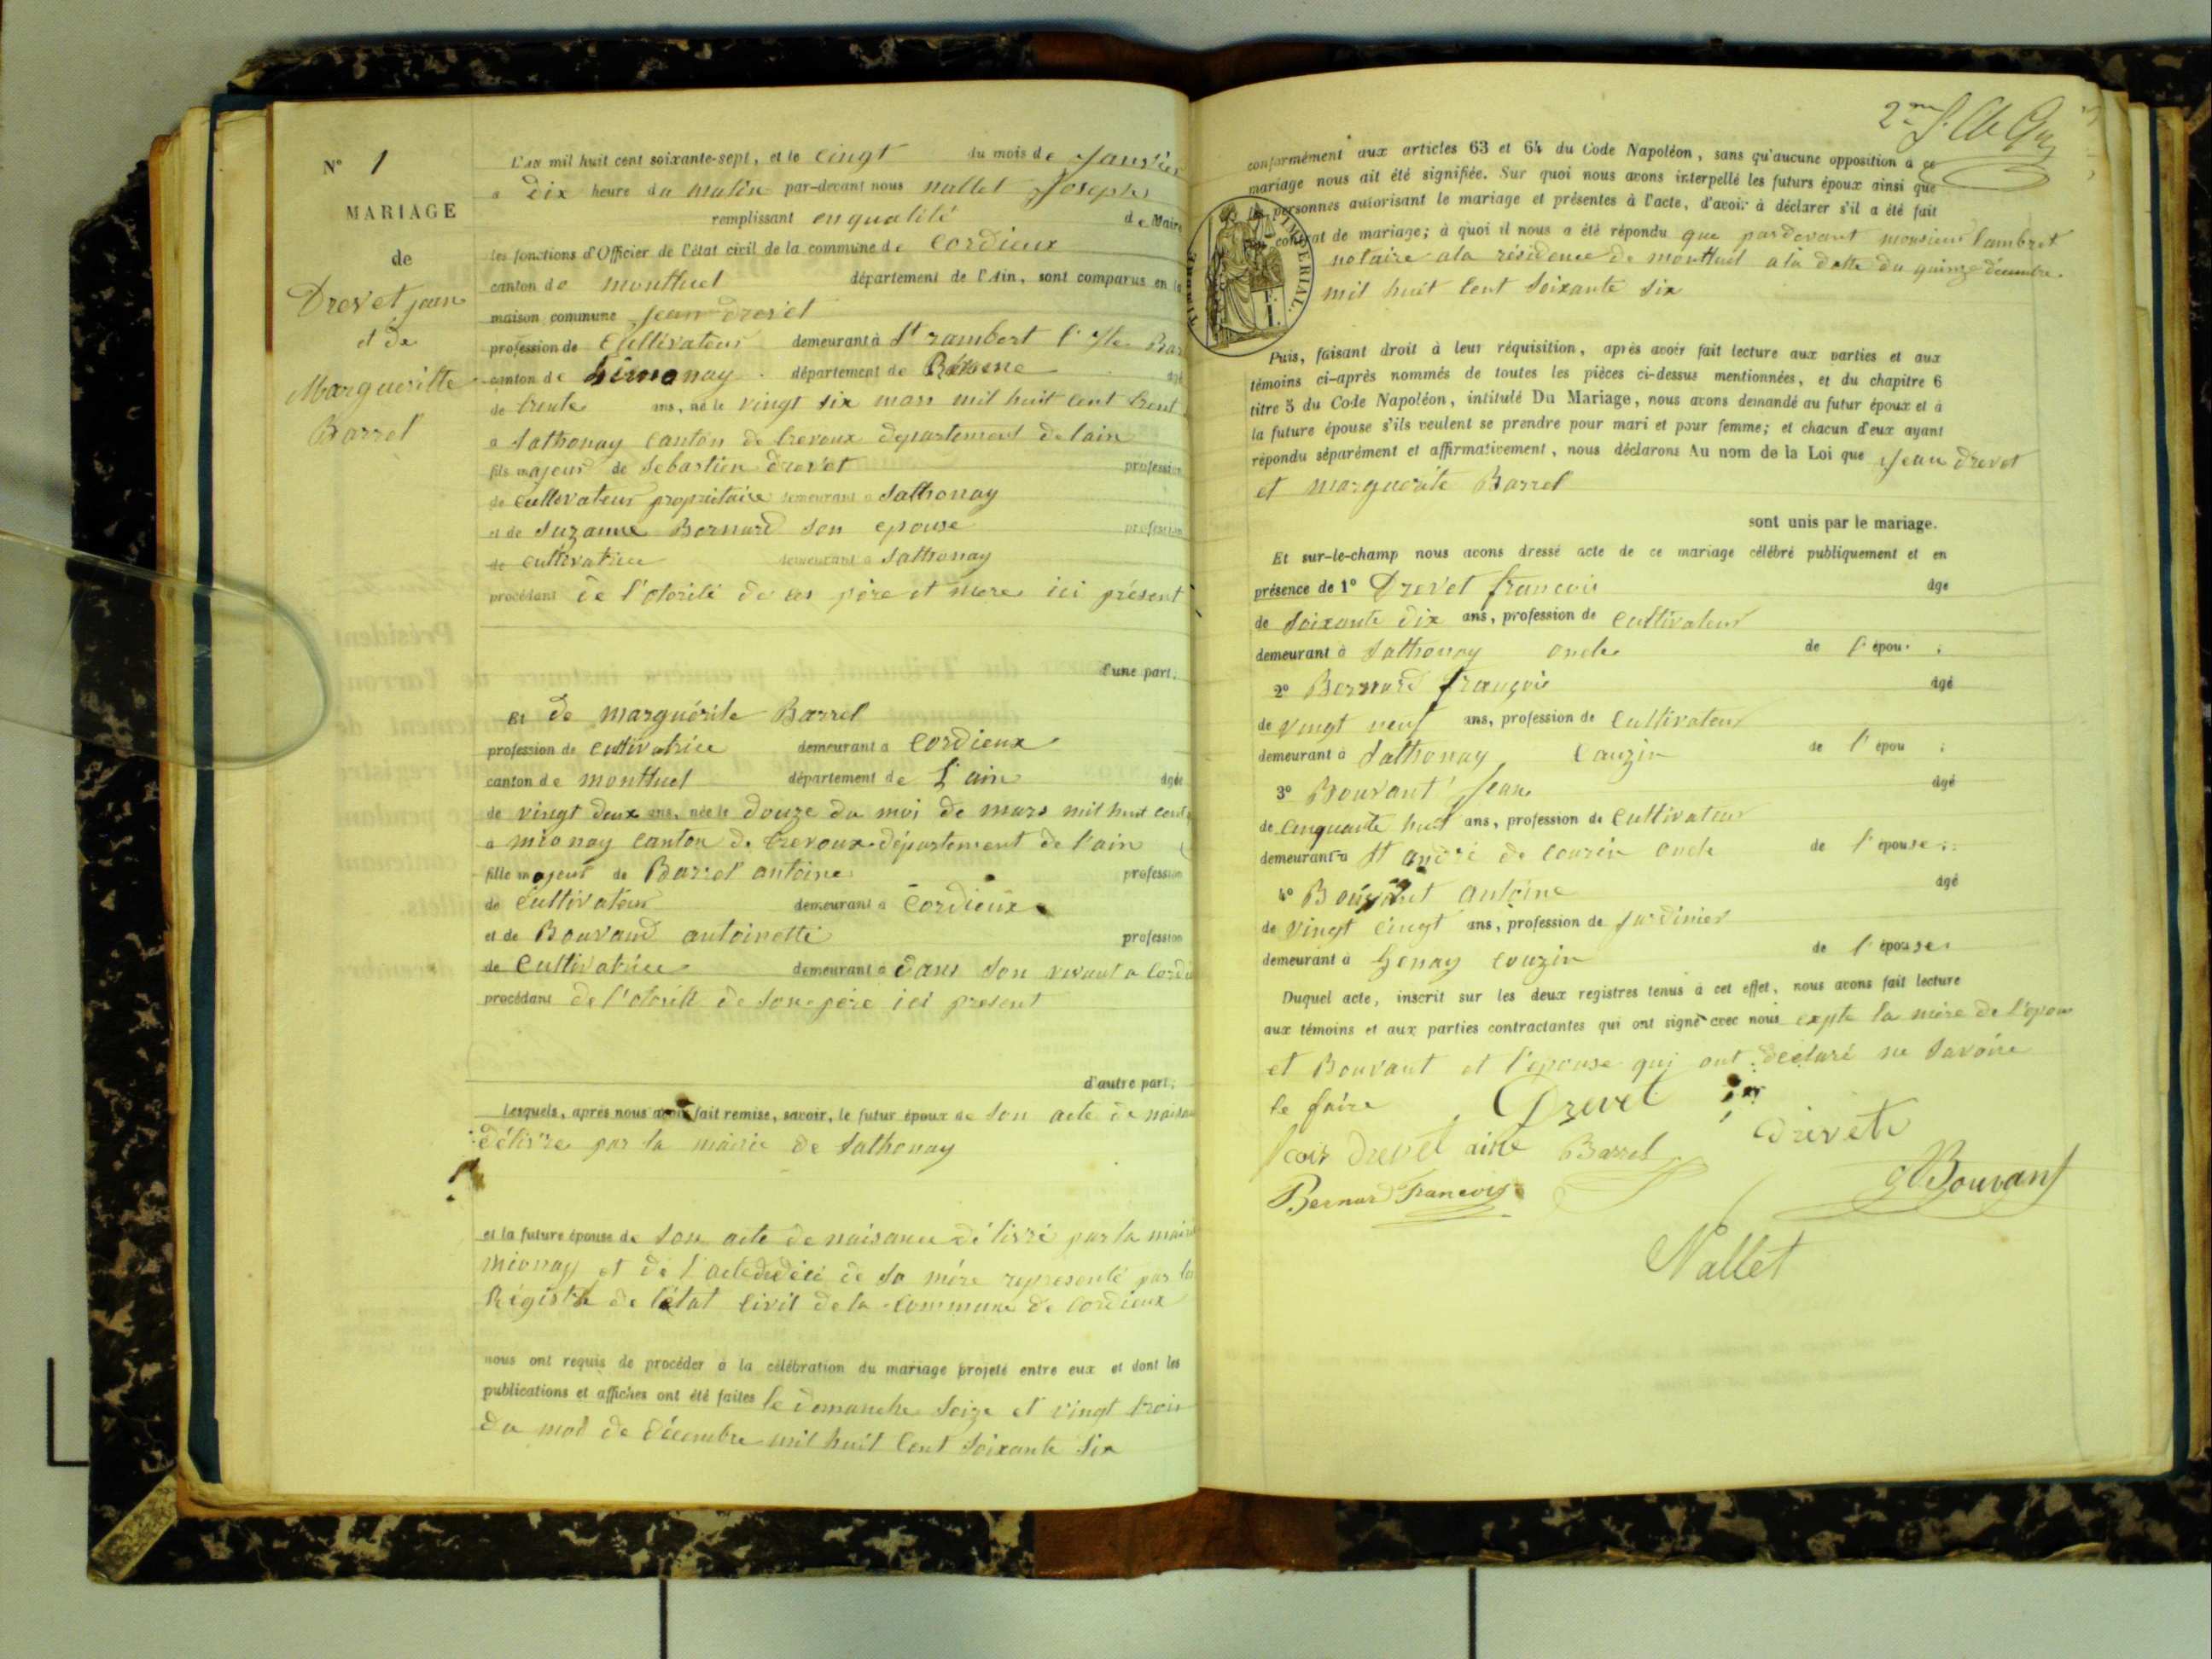 N° 1
MARIAGE
de
Drevet jean
et de
Margueritte
Barrel
L'AN mil huit cent soixante-sept, et le cingt du mois de Janvier
a dix heure du matin par-devant nous nallet Joseph
remplissant en qualité de Maire
les fonctions d'Officier de l'état civil de la commune de Cordieux
canton de montluel département de l'Ain, sont comparus en la
maison commune Jean drevet
profession de Cultivateur demeurant à St rambert l'Ile Bar
canton de Limonay département de
de trente ans, né le vingt six mars mil huit cent trent
a Sathonay canton de trevoux departement de lain
fils majeur de Sebastien drevet profession
de cultivateur propriétaire demeurant a Sathonay
et de Suzanne Bernard son epouse profession
de cultivatrice demeurant a Sathonay
procédant de l'otorité de ses père et mere ici présent
d'une part;
Et de marguérite Barrel
profession de cultivatrice demeurant a Cordieux
canton de montluel département de L'ain agée
de vingt deux ans, née le douze du moi de mars mil huit cent
a mionay canton de trevoux département de l'ain
fille majeur de Barrel antoine profession
de Cultivateur demeurant a Cordieux
et de Bouvand antoinette profession
de Cultivatrice demeurant a dans son vivant a Cordi
procédant de l'otorité de son père ici present
d'autre part;
Lesquels, après nous avoir fait remise, savoir, le futur époux de son acte de naisan
délivre par la mairie de Sathonay
et la future épouse de son acte de naisance délivré par la mairi
mionay et de l'acte de décé de sa mére representé par les
Régistre de l'état civil de la commune de Cordieux
nous ont requis de procéder à la célébration du mariage projeté entre eux et dont les
publications et affiches ont été faites le domanche seize et vingt trois
du moi de décembre mil huit cent soixante six
2me
conformément aux articles 63 et 64 du Code Napoléon, sans qu'aucune opposition a ce
mariage nous ait été signifiée. Sur quoi nous avons interpellé les futurs époux ainsi que
les personnes autorisant le mariage et présentes à l'acte, d'avoir à déclarer s'il a été fait
contrat de mariage; à quoi il nous a été répondu que pardevant monsieur Lambret
notaire a la résidence de montluel a la datte du quinze décembre
mil huit cent soixante six
TIMBRE IMPÉRIAL.
Puis, faisant droit à leur réquisition, après avoir fait lecture aux parties et aux
témoins ci-après nommés de toutes les pièces ci-dessus mentionnées, et du chapitre 6
titre 5 du Code Napoléon, intitulé Du Mariage, nous avons demandé au futur époux et à
la future épouse s'ils veulent se prendre pour mari et pour femme; et chacun d'eux ayant
répondu séparément et affirmativement, nous déclarons Au nom de la Loi que Jean drevet
et marguerite Barrel
sont unis par le mariage.
Et sur-le-champ nous avons dressé acte de ce mariage célébré publiquement et en
présence de 1° Drevet francois âge
de soixante dix ans, profession de cultivateur
demeurant à Sathonay oncle de l'épou
2° Bernard françois âgé
de vingt neuf ans, profession de Cultivateur
demeurant à Sathonay Cauzin de l'épou
3° Bouvant Jean âgé
de cinquante huit ans, profession de Cultivateur
demeurant a St andré de courin oncle de l'épouse
4° Bouvant antoine âgé
de vingt cingt ans, profession de jardinier
demeurant à Genay couzin de l'épouse
Duquel acte, inscrit sur les deux registres tenus à cet effet, nous avons fait lecture
aux témoins et aux parties contractantes qui ont signé avec nous expte la mère de l'épou
et Bouvant et l'épouse qui ont déclaré ne savoire
le faire Drevet
drevet ainé Barrel drevete
Bernard Francois Bouvant
Nallet